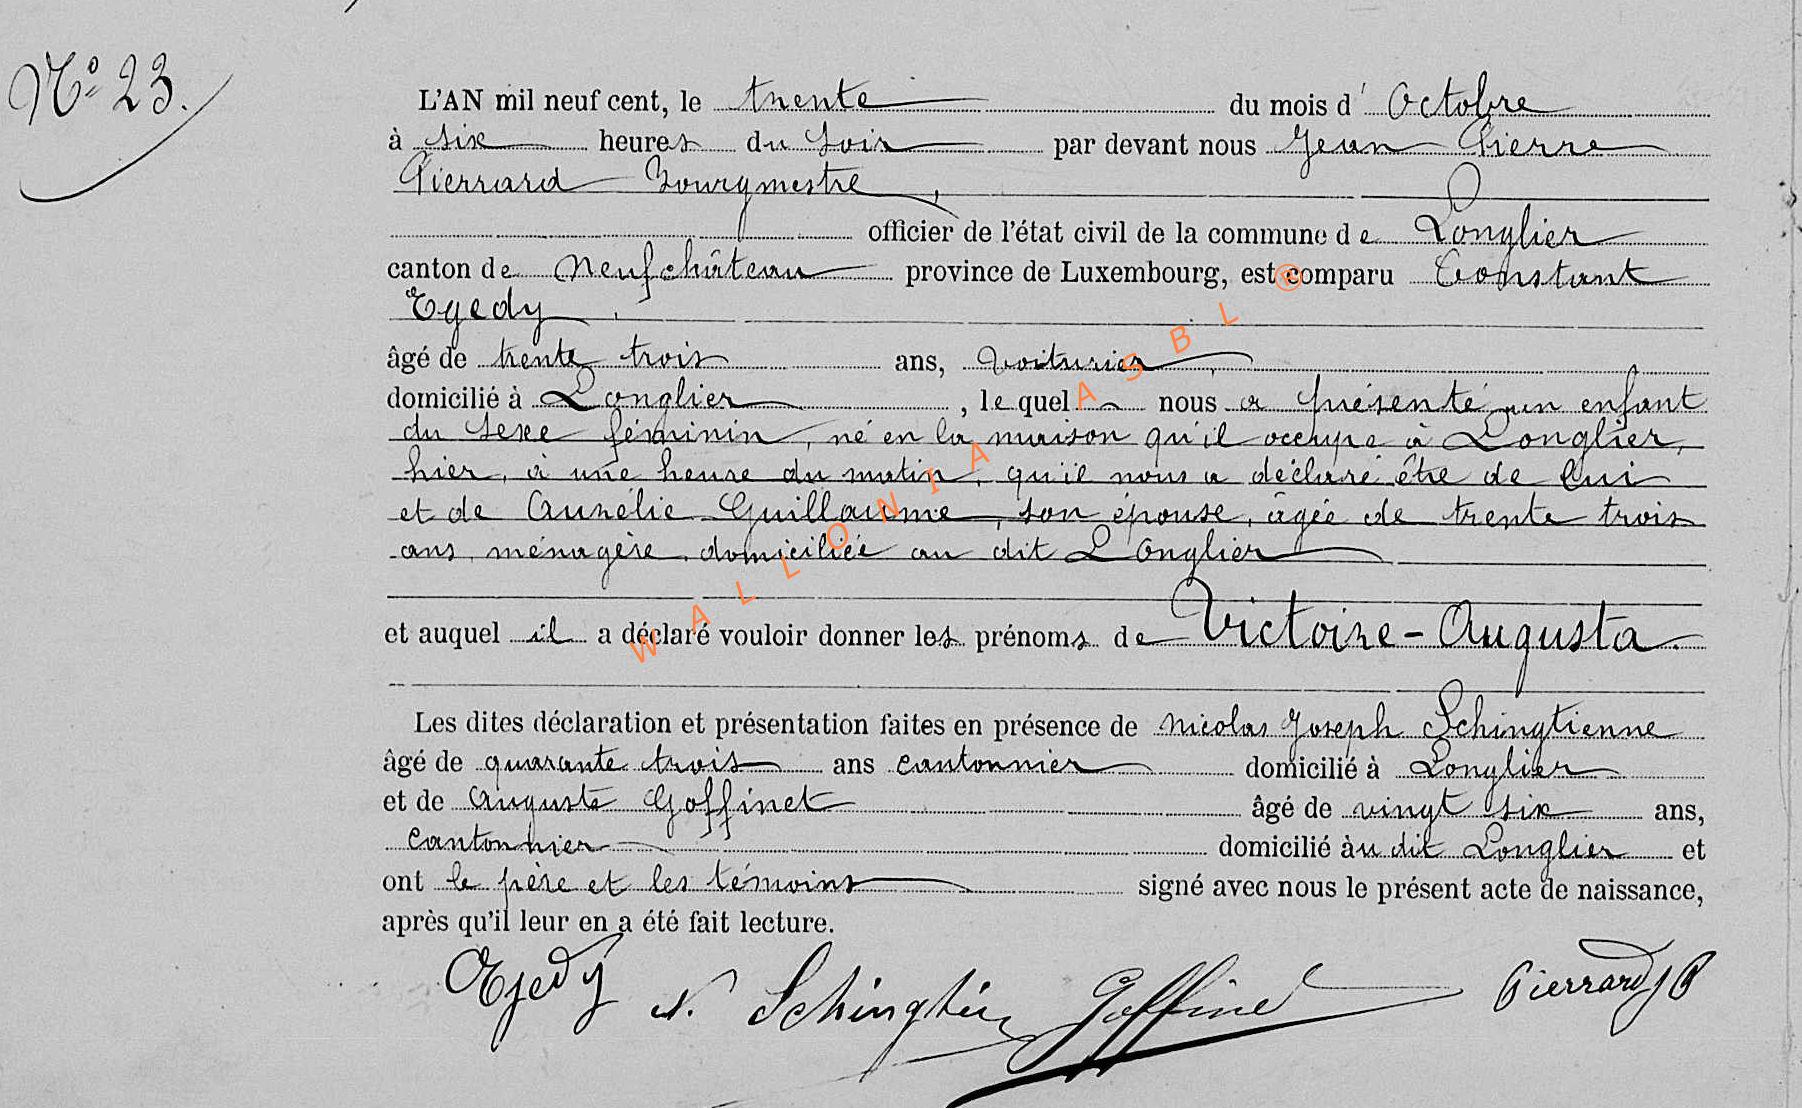 N° 23.
L'AN mil neuf cent, le trente du mois d' Octobre
à six heures du soir par devant nous Jean Pierre
Pierrard Bourgmestre,
officier de l'état civil de la commune de Longlier
canton de Neufchâteau province de Luxembourg, est comparu Constant
Egedy
âgé de trente trois ans, voiturier,
domicilié à Longlier, lequel nous a présenté un enfant
du sexe féminin, né en la maison qu'il occupe à Longlier,
hier, à une heure du matin, qu'il nous a déclaré être de lui
et de Aurélie Guillaume, son épouse, âgée de trente trois
ans, ménagère, domiciliée au dit Longlier
et auquel il a déclaré vouloir donner les prénoms de Victoire-Augusta.
Les dites déclaration et présentation faites en présence de Nicolas Joseph Schingtienne
âgé de quarante trois ans cantonnier domicilié à Longlier
et de Auguste Goffinet âgé de vingt six ans,
cantonnier domicilié àu dit Longlier et
ont le père et les témoins signé avec nous le présent acte de naissance,
après qu'il leur en a été fait lecture.
Egedy N. Schingtien Goffinet Pierrard JP
WALLONIA ASBL ®